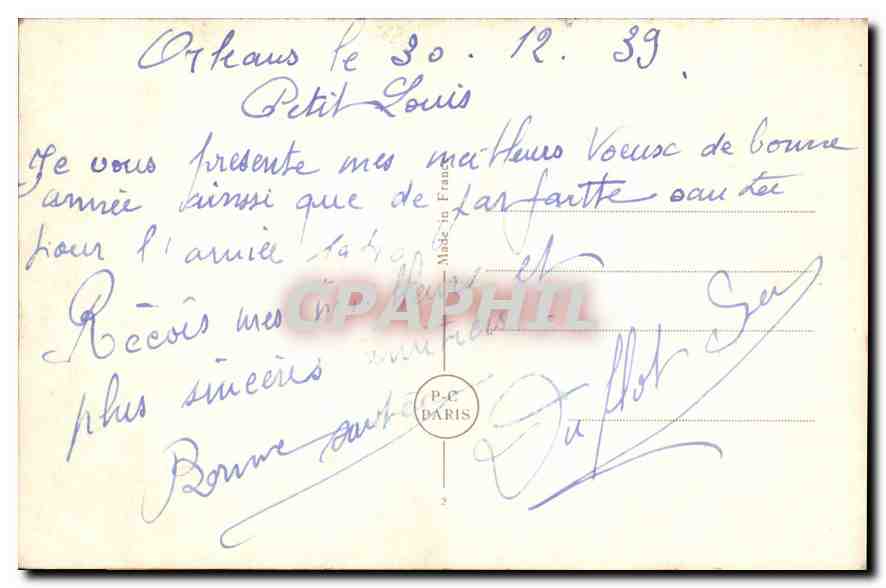 Orleans le 30. 12. 39.
Petit Louis
Je vous presente mes meilleurs Voeux de bonne
année ainssi que de parfaitte santée
pour l'année
Reçois mes meilleurs et
plus sincères amitiés
Bonne santée
Duflot
Made in France
CPAPHIL
P-C
PARIS
2